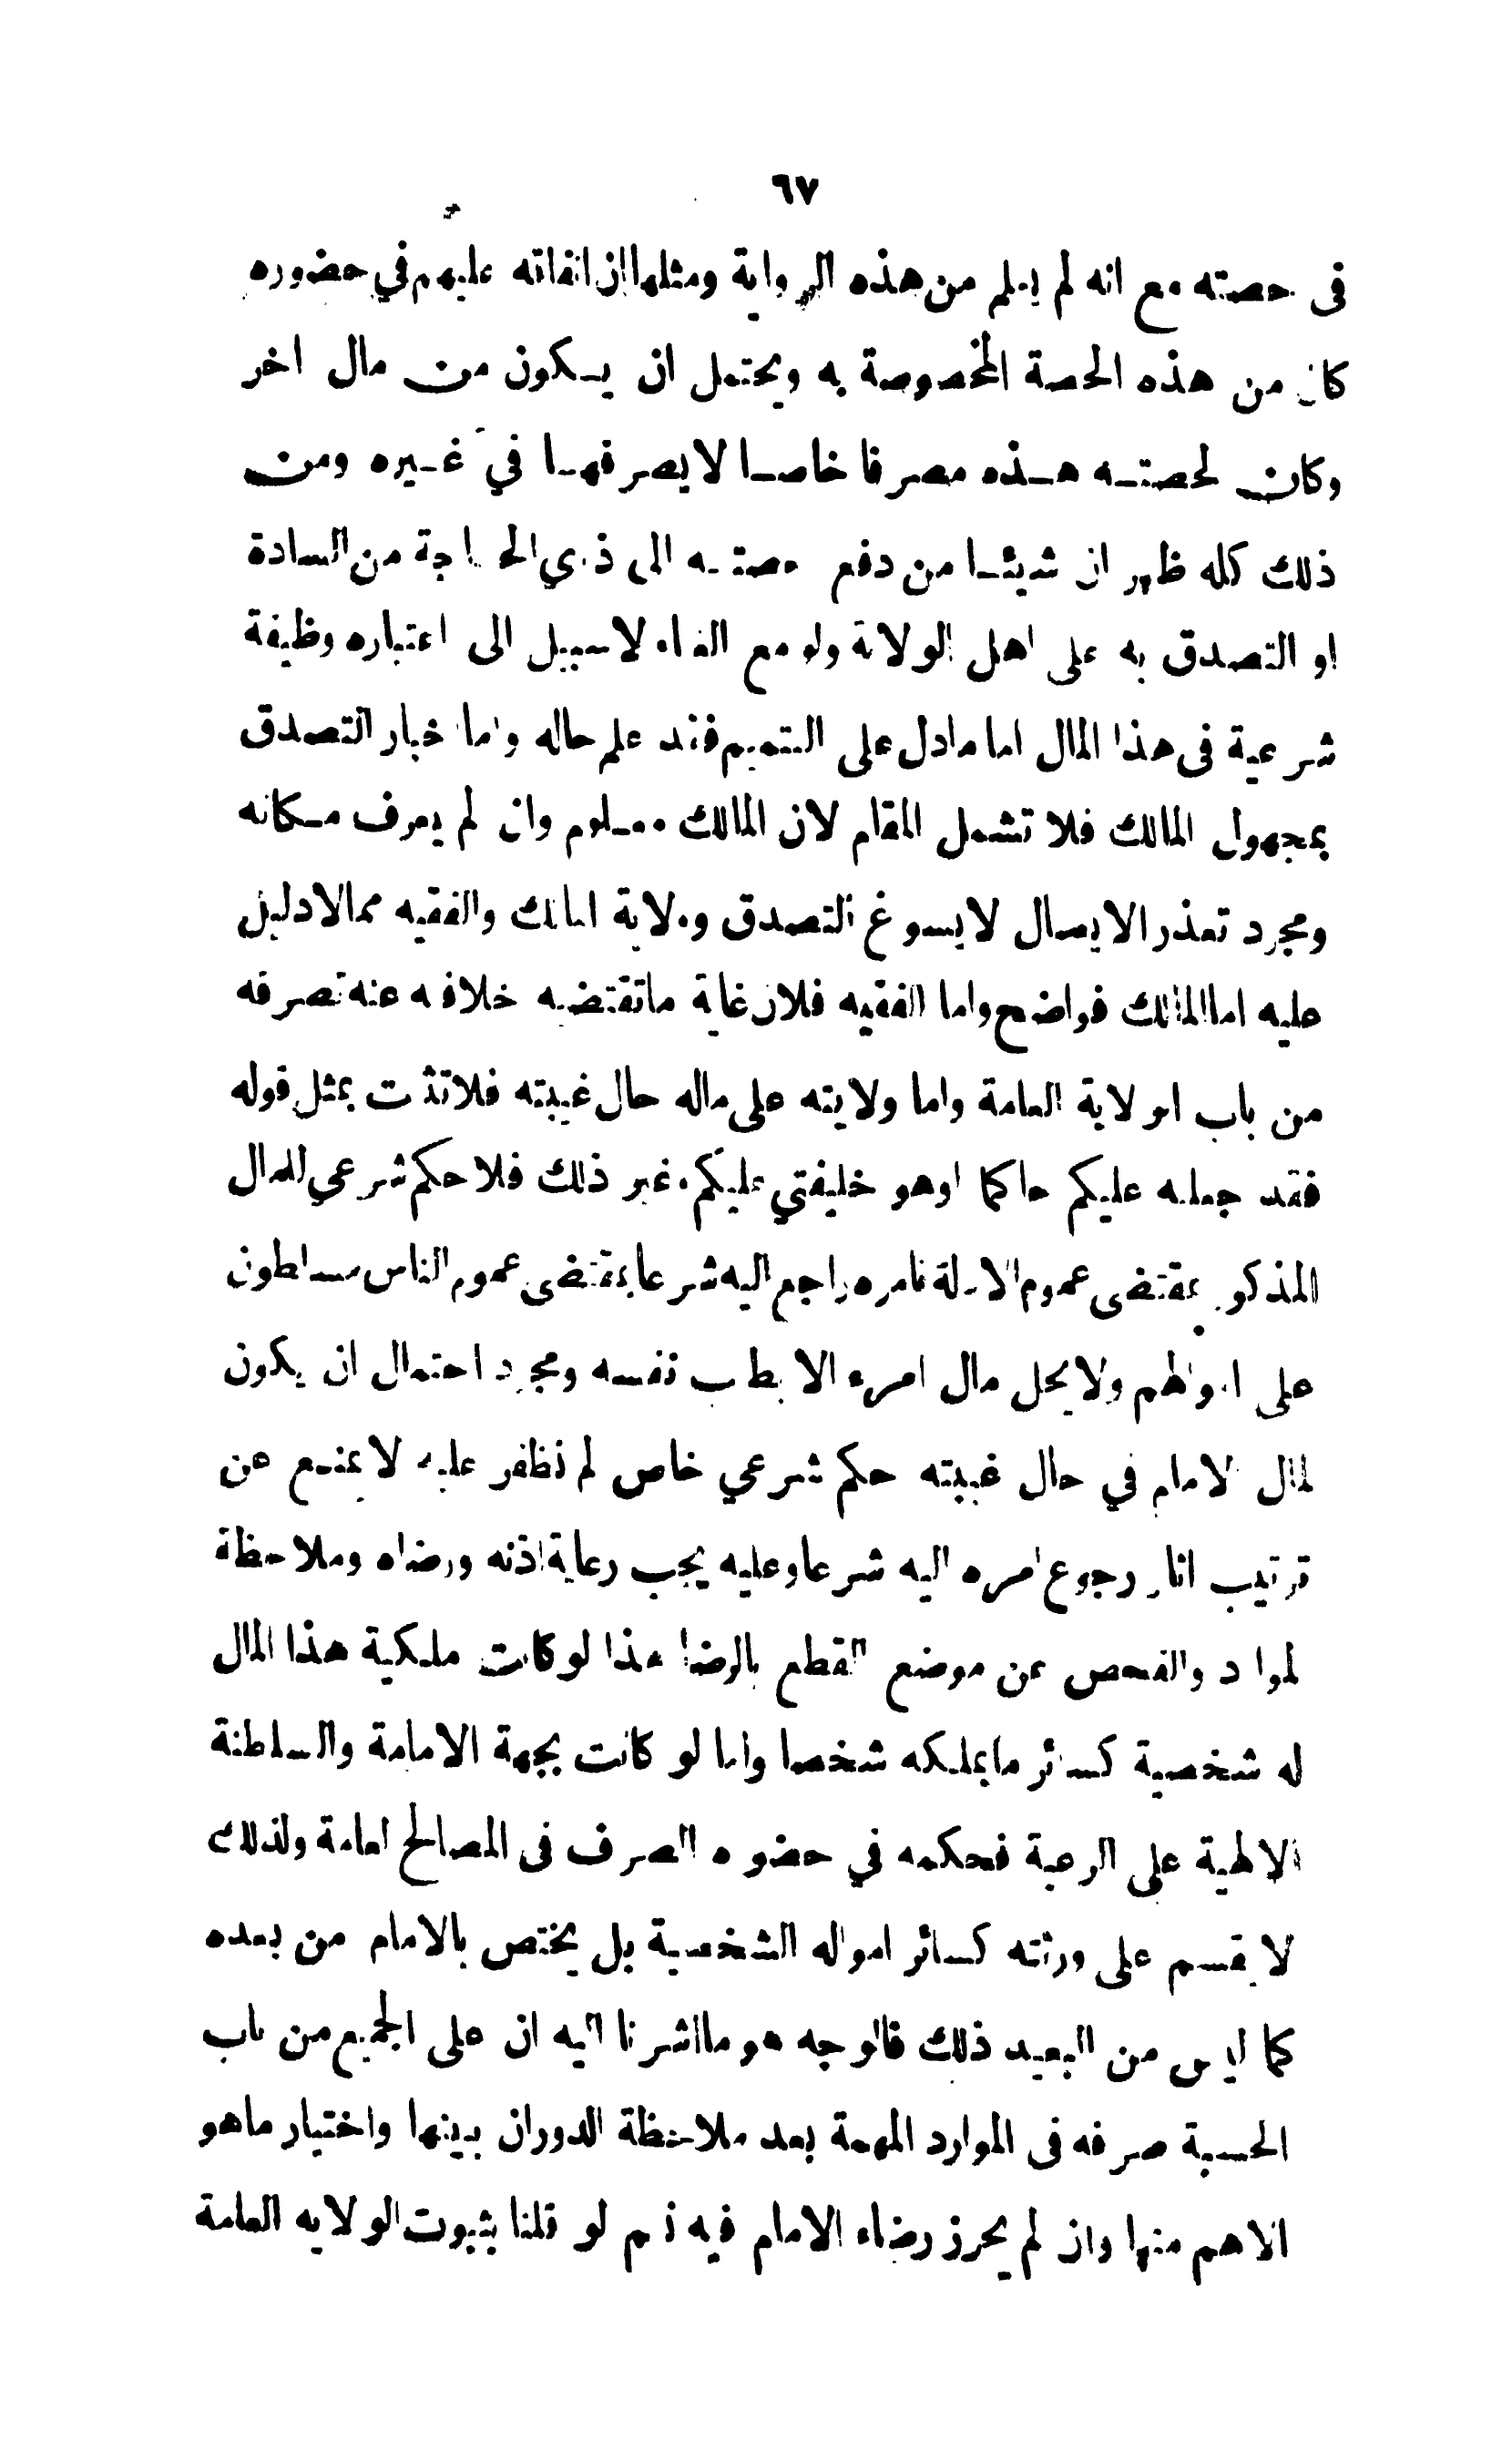 ٦٧
فى حصته مع انه لم يعلم من هذه الرواية ومثلها ان انفاته عليهم في حضوره
كان من هذه الحصة المخصوصة به ويحتمل ان يكون من مال اخر
وكان لحصته هذه مصرفا خاصا لا يصرفها في غيره ومن
ذلك كله ظهر ان شيئا من دفع حصته الى ذي الحاجة من السادة
او التصدق به على اهل الولاية ولو مع الغاء لا سبيل الى اعتباره وظيفة
شرعية فى هذا المال اما مادل على التتميم فقد علم حاله واما خبار التصدق
بمجهول المالك فلا تشمل المقام لان المالك معلوم وان لم يعرف مكانه
ومجرد تعذر الايصال لا يسوغ التصدق وولاية المالك والفقيه ممالادليل
عليه اما المالك فواضح واما الفقيه فلان غاية ماتقتضيه خلافه عنه تصرفه
من باب الولاية العامة واما ولايته على ماله حال غيبته فلا تثبت بمثل قوله
فقد جعله عليكم حاكما اوهو خليفتي عليكم وغير ذلك فلا حكم شرعي للمال
المذكور بمقتضى عموم الادلة فامره راجع اليه شرعا بمقتضى عموم الناس مسلطون
على اموالهم ولا يحل مال امرء الا بطيب نفسه ومجرد احتمال ان يكون
لمال الامام في حال غيبته حكم شرعي خاص لم نظفر عليه لا يمنع عن
ترتيب اثار رجوع امره اليه شرعا وعليه يجب رعاية اذنه ورضاه وملاحظة
لموارد والفحص عن موضع القطع بالرضا هذا لو كانت ملكية هذا المال
له شخصية كسائر مايملكه شخصا واما لو كانت بجهة الامامة والسلطنة
الالهية على الرعية فحكمه في حضوره الصرف فى المصالح العامة ولذلك
لا يقسم على ورثته كسائر امواله الشخصية بل يختص بالامام من بعده
كما ليس من البعيد ذلك فالوجه هو مااشرنا اليه ان على الجميع من باب
الحسبة صرفه فى الموارد المهمة بعد ملاحظة الدوران بينها واختيار ماهو
الاهم منها وان لم يحرز رضاء الامام فيه نعم لو قلنا بثبوت الولايه العامة